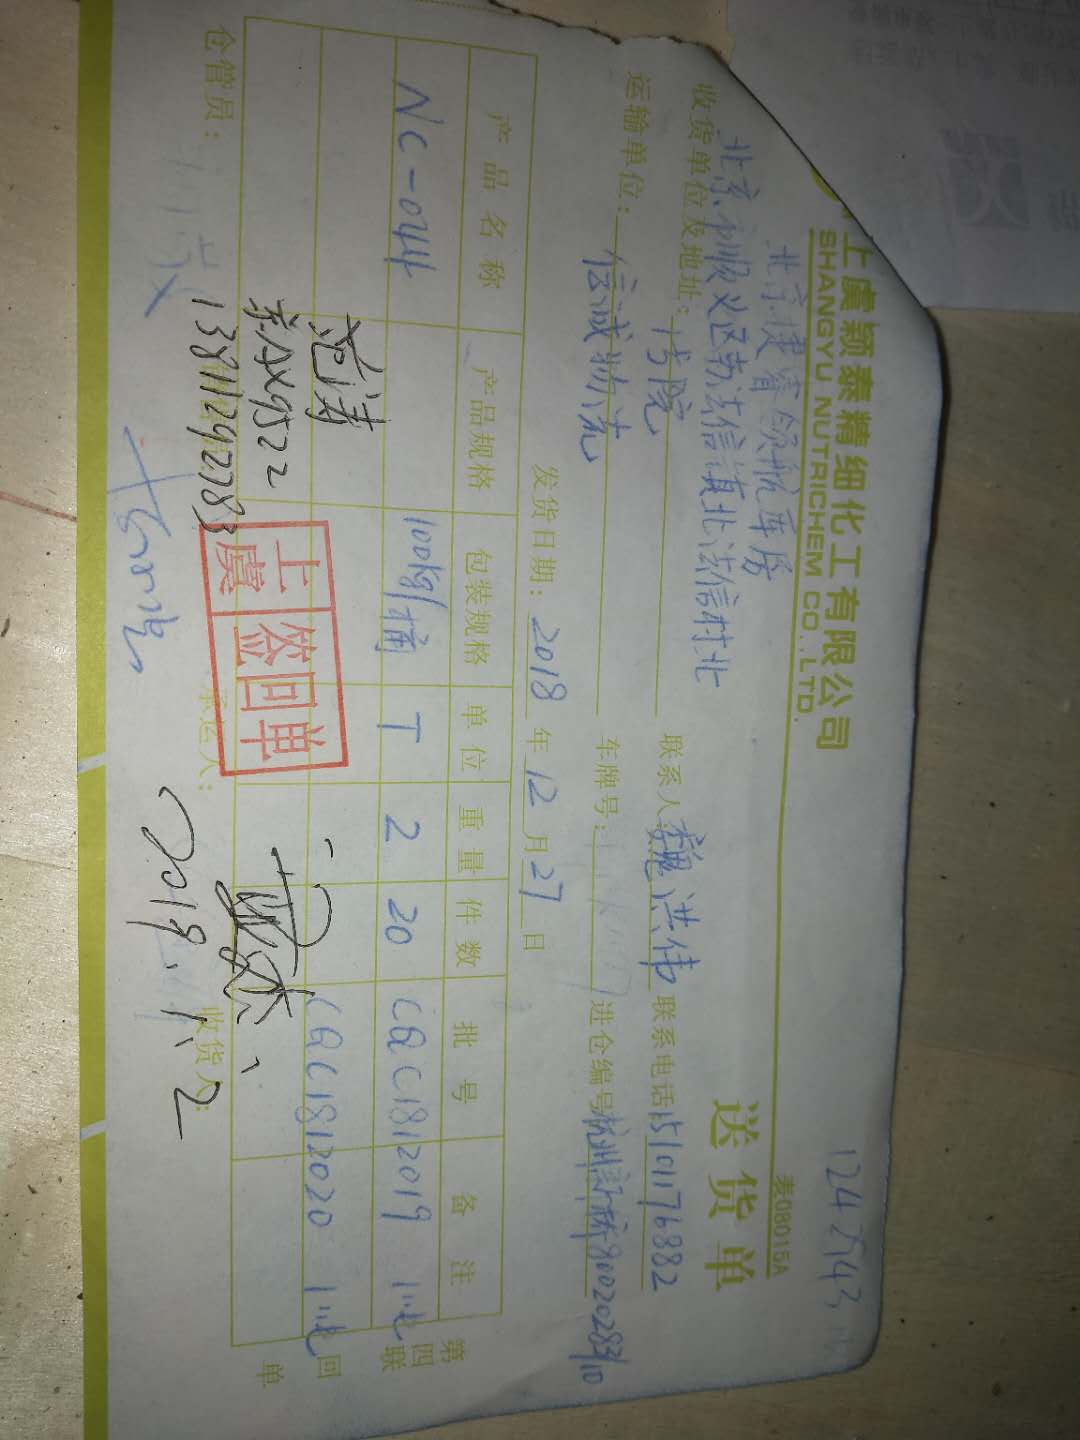 上虞颖泰精细化工有限公司
SHANGYU NUTRICHEM CO.,LTD.
表08015A
送货单
北京捷睿领航库房
收货单位及地址：北京顺义区
信镇北法信村北
书院
联系人：魏洪伟 联系电话 15101176882
运输单位：信诚物流 车牌号： 进仓编号 杭州新桥8002028310
发货日期：2018年12月27日
产品名称 产品规格 包装规格 单位 重量 件数 批号 备注
NC-044 100kg/桶 T 2 20 CQC1812019 1吨
CQC1812020 1吨
第四联 回单
范涛
13811292783
上虞 签回单
仓管员： 承运人： 收货人：
2019.1.2